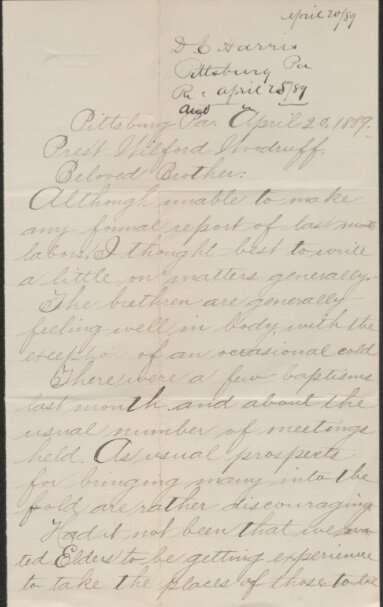 April 20/89
D E Harris
Pittsburg Pa
Rec April 25/89
Ansd
Pittsburg Pa. April 20, 1889.
Prest Wilford Woodruff.
Beloved Brother:
Although unable to make
any formal report of last month
labors, I thought best to write
a little on matters generally.
The brethren are generally
feeling well in body, with the
exception of an occasional cold
There were a few baptisms
last month and about the
usual number of meetings
held. As usual prospects
for bringing many into the
fold are rather discouraging
Had it not been that we wan
ted Elders to be getting experience
to take the places of those to be